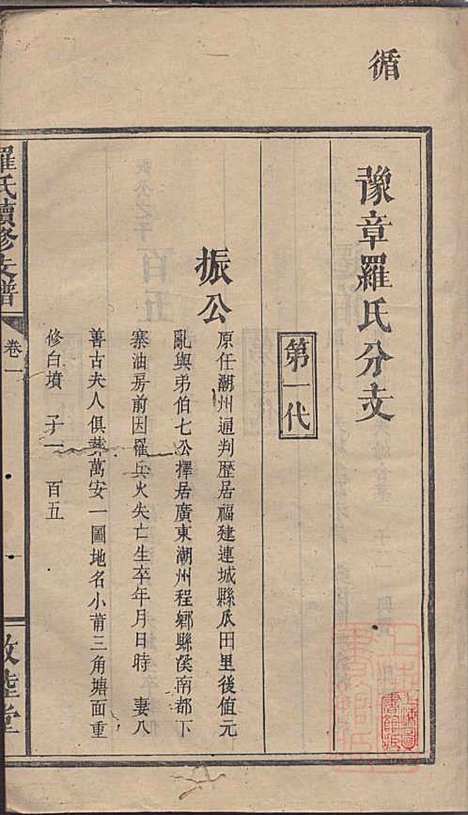 循
豫章羅氏分支
第一代
振公
原任潮州通判歷居福建連城縣瓜田里後值元
亂與弟伯七公擇居廣東潮州程鄉縣溪南都下
寨油房前因羅兵火失亡生卒年月日時 妻八
善古夫人俱葬萬安一圖地名小莆三角塘面重
修白墳 子一 百五
羅氏續修支譜
卷一
敦睦堂